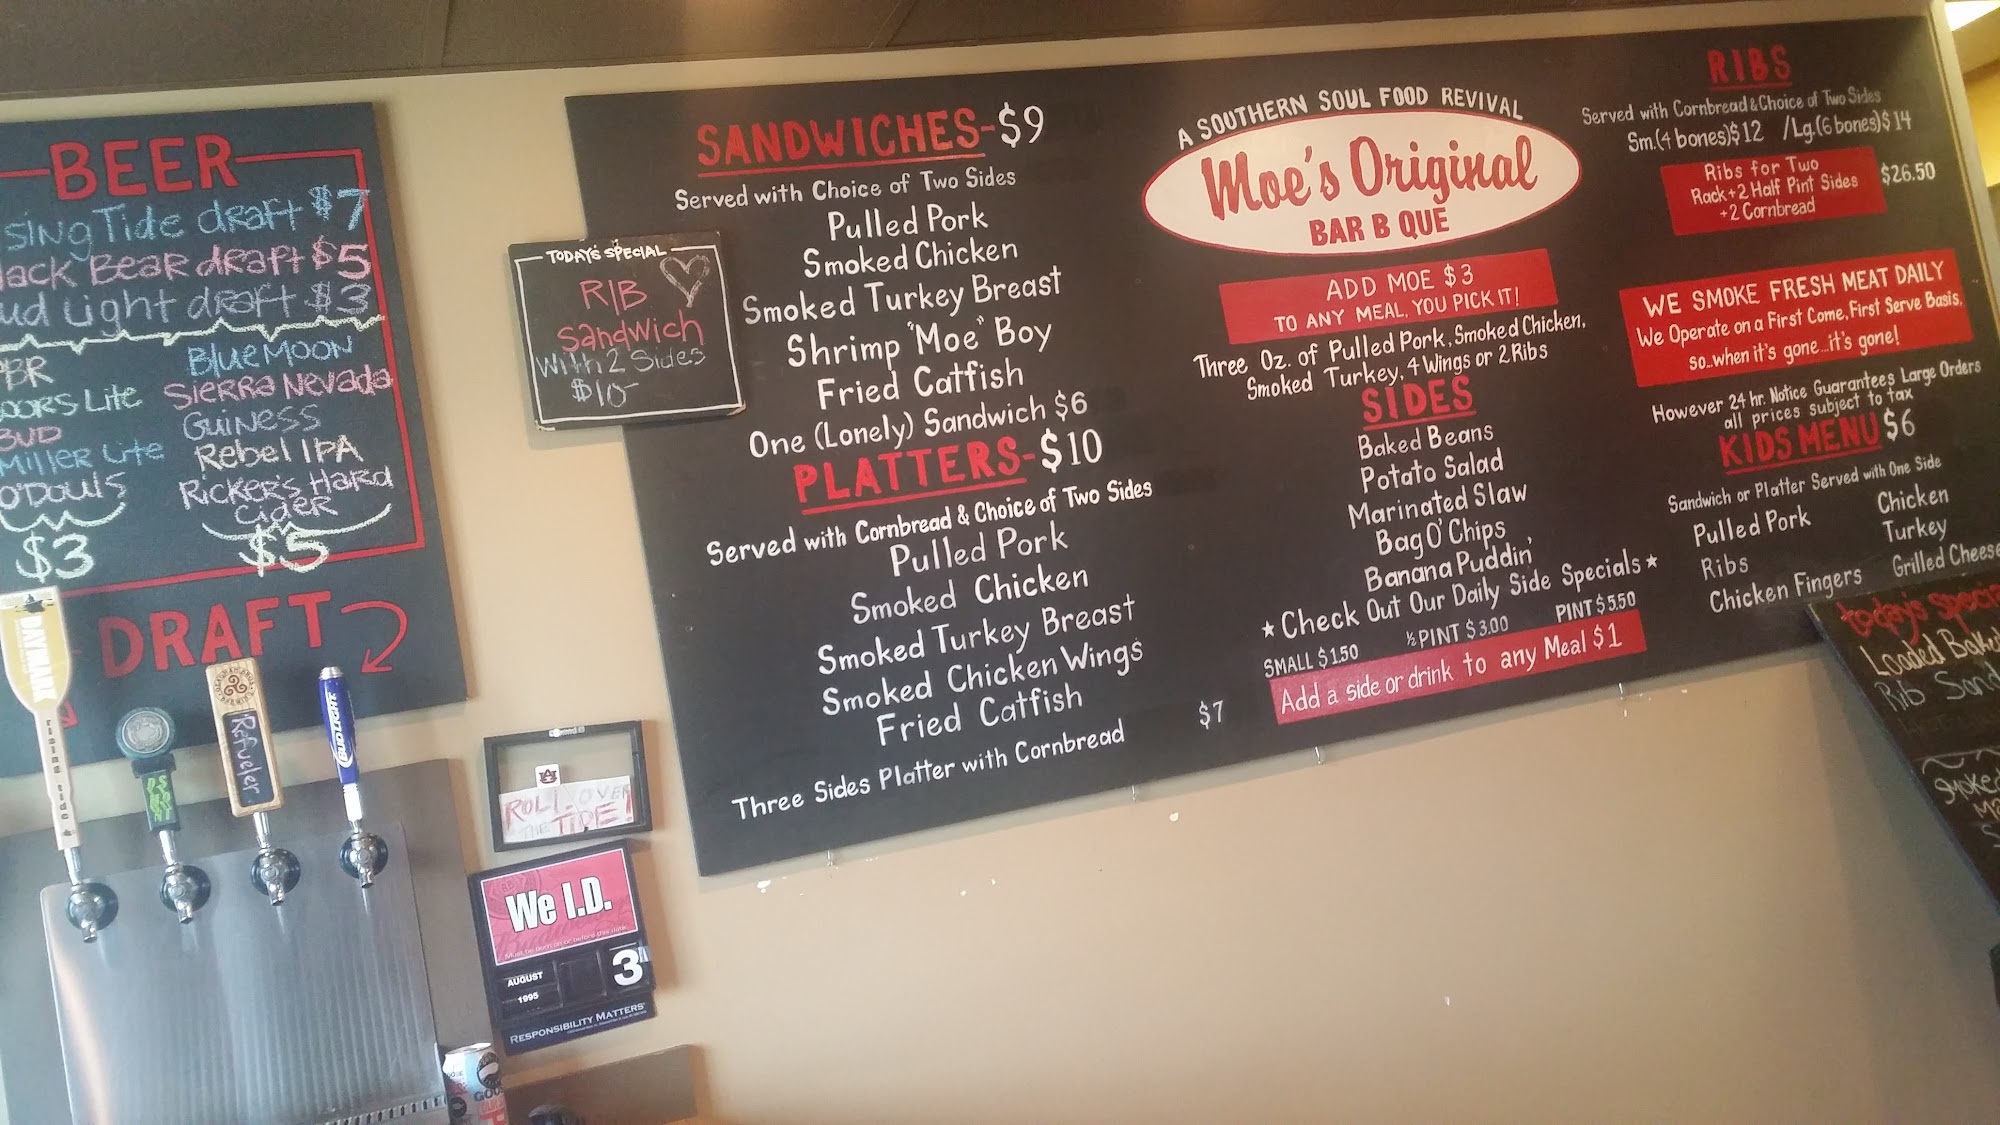 BEER
sing Tide draft $7
lack Bear draft $5
ud Light draft $3
PBR
oors Lite
BUD
Miller Lite
O'Douls
$3
Blue Moon
Sierra Nevada
Guiness
Rebel IPA
Ricker's Hard
Cider
$5
DRAFT
DAYMARK
rising tide
Refueler
BUD LIGHT
TODAY'S SPECIAL
RIB
Sandwich
With 2 Sides
$10
ROLL OVER
THE TIDE!
We I.D.
Must be born on or before this date
AUGUST
1995
3
RESPONSIBILITY MATTERS
SANDWICHES-$9
Served with Choice of Two Sides
Pulled Pork
Smoked Chicken
Smoked Turkey Breast
Shrimp "Moe" Boy
Fried Catfish
One (Lonely) Sandwich $6
PLATTERS-$10
Served with Cornbread & Choice of Two Sides
Pulled Pork
Smoked Chicken
Smoked Turkey Breast
Smoked Chicken Wings
Fried Catfish
Three Sides Platter with Cornbread $7
A SOUTHERN SOUL FOOD REVIVAL
Moe's Original
BAR B QUE
ADD MOE $3
TO ANY MEAL, YOU PICK IT!
Three Oz. of Pulled Pork, Smoked Chicken,
Smoked Turkey, 4 Wings or 2 Ribs
SIDES
Baked Beans
Potato Salad
Marinated Slaw
Bag O' Chips
Banana Puddin'
★ Check Out Our Daily Side Specials ★
SMALL $1.50 ½ PINT $3.00 PINT $5.50
Add a side or drink to any Meal $1
RIBS
Served with Cornbread & Choice of Two Sides
Sm.(4 bones)$12 /Lg.(6 bones)$14
Ribs for Two
Rack+2 Half Pint Sides
+2 Cornbread
$26.50
WE SMOKE FRESH MEAT DAILY
We Operate on a First Come, First Serve Basis,
so..when it's gone...it's gone!
However 24 hr. Notice Guarantees Large Orders
all prices subject to tax
KIDS MENU $6
Sandwich or Platter Served with One Side
Pulled Pork
Ribs
Chicken Fingers
Chicken
Turkey
Grilled Cheese
today's specia
Loaded Baked
Rib Sand
Smoked